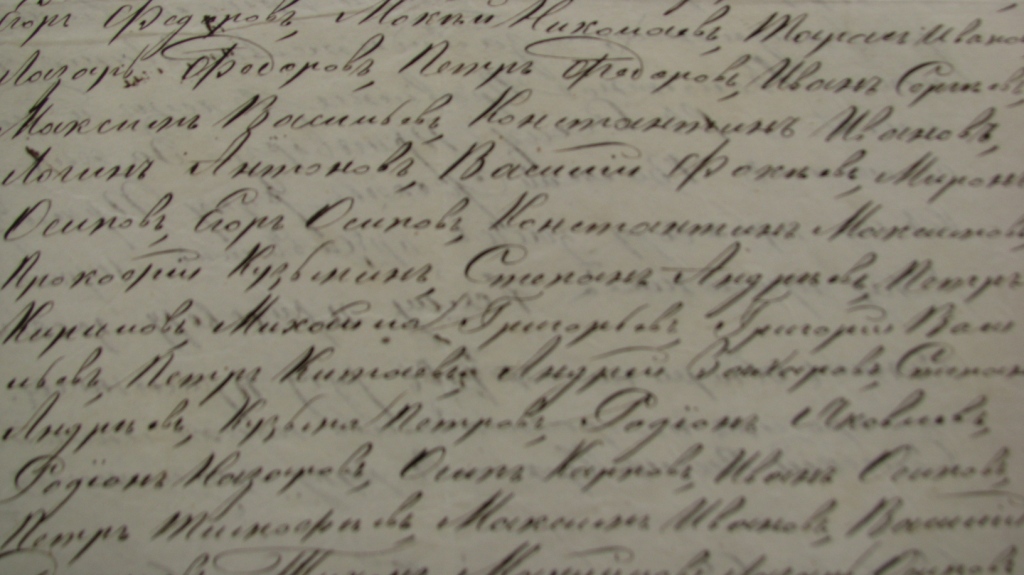 Егоръ Федоровъ, Максим Николаевъ, Тарасъ Ивано
Лазарь Федоровъ, Петръ Федоровъ, Иванъ Сергѣевъ,
Максимъ Васильевъ, Константинъ Ивановъ,
Логинъ Антоновъ, Василій Фокѣевъ, Миронъ
Осиповъ, Егоръ Осиповъ, Константинъ Максимовъ,
Прокофій Кузьминъ, Степанъ Андрѣевъ, Петръ
Кириловъ, Михайла Григорьевъ, Григорій Васи
льевъ, Петръ Андрѣй Захаровъ, Степанъ
Андрѣевъ, Кузьма Петровъ, Родіонъ Яковлевъ,
Родіонъ Назаровъ, Осипъ Карповъ, Иванъ Осиповъ,
Петръ Тимофѣевъ, Максимъ Ивановъ, Василій
Осиповъ